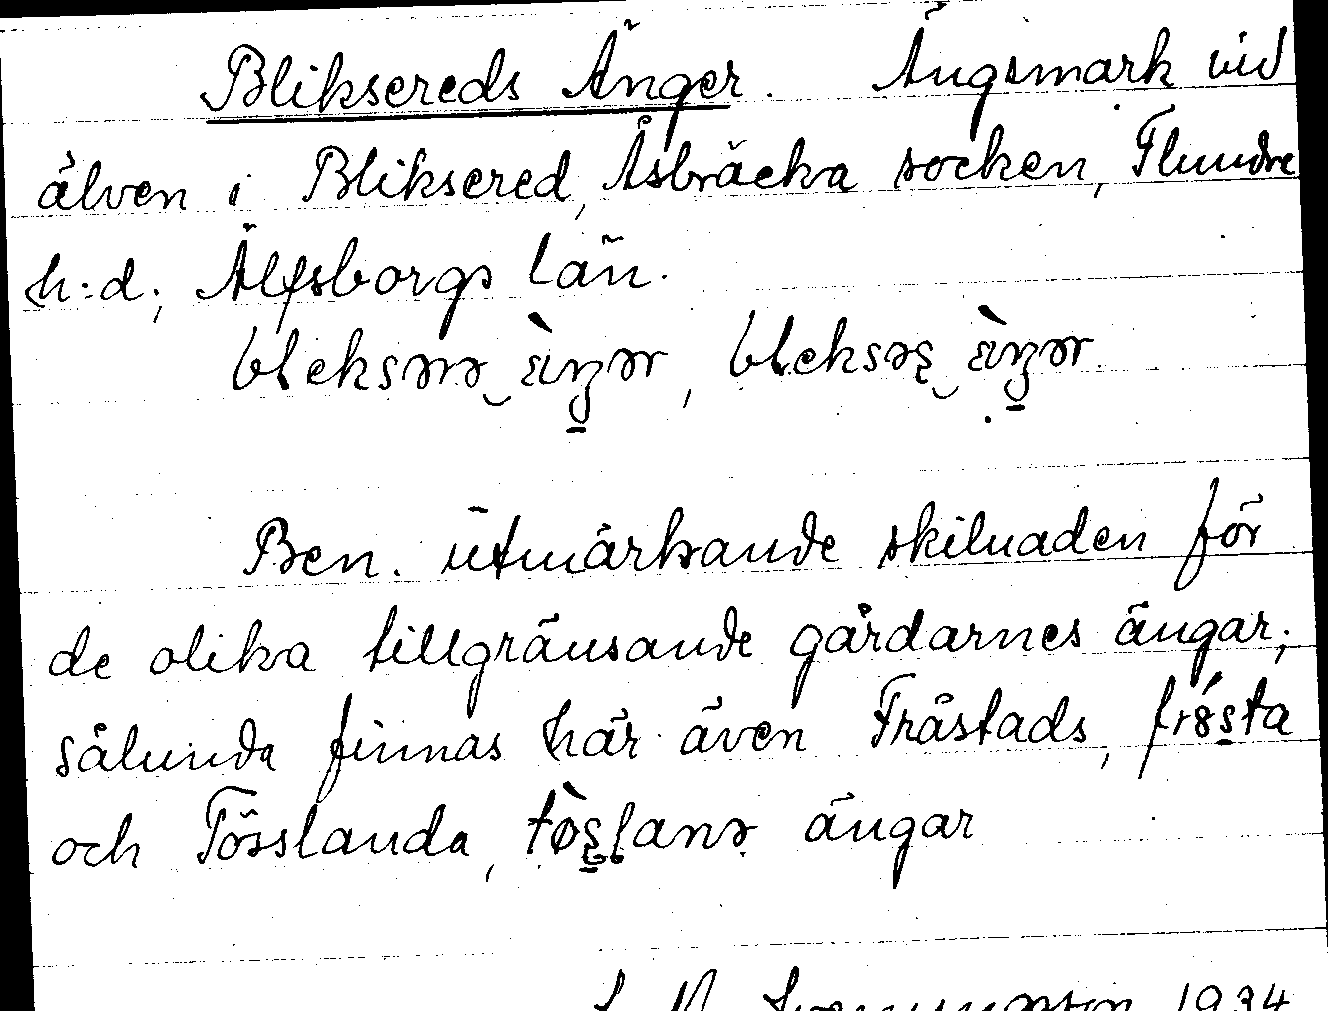 Bliksereds Änger. Ängsmark vid
älven i Bliksered, Åsbräcka socken, Flundre
h:d., Älfsborgs län.
bleksərə ̮ ὰŋər, bleksəs̨ ̮ ὰŋər.
Ben. utmärkande skilnaden för
de olika tillgränsande gårdarnes ängar;
sålunda finnas här även Fråstads, frósta
och Tösslanda, tø̀s̨lanə ängar
1934